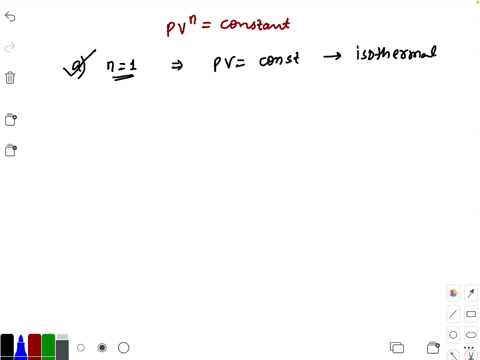 PVⁿ = constant
a) n=1 ⇒ PV = const → isothermal